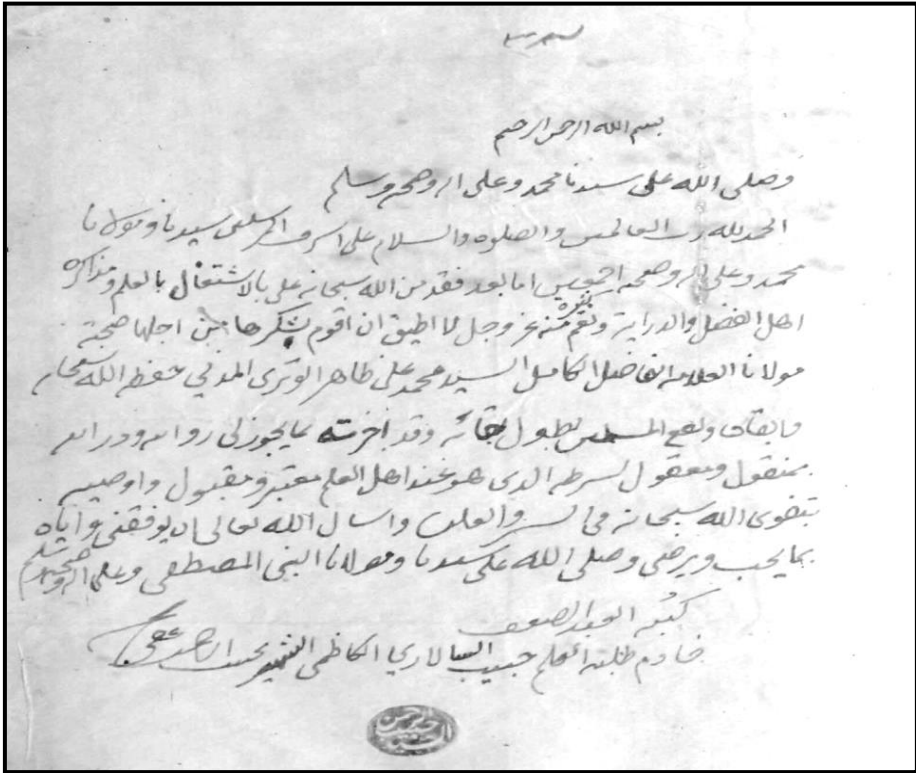 بسم الله الرحمن الرحيم
وصلى الله على سيدنا محمد وعلى اله وصحبه وسلم
الحمد لله رب العالمين والصلوه والسلام على اشرف المرسلين سيدنا ومولانا
محمد وعلى اله وصحبه اجمعين اما بعد فقد من الله سبحانه على بالاشتغال بالعلم ومذاكره
اهل الفضل والدراية ونعم كثيره منه عز وجل لا اطيق ان اقوم بشكرها من اجلها صحبة
مولانا العلامه الفاضل الكامل السيد محمد على ظاهر الوترى المدني حفظه الله سبحانه
وابقاه ونفع المسلمين بطول بقائه وقد اجزته بما يجوز لى روايه ودرايه
بمنقول ومعقول بشرطه الذى هو عند اهل العلم معتبر ومقبول واوصيه
بتقوى الله سبحانه فى السر والعلن واسال الله تعالى ان يوفقنى واياه
بما يحب ويرضى وصلى الله على سيدنا ومولانا النبى المصطفى وعلى اله وصحبه وسلم
كتبه العبد الضعيف
خادم طلبة العلم حبيب الرحمن الكاظمى الشهير
حبيب الرحمن